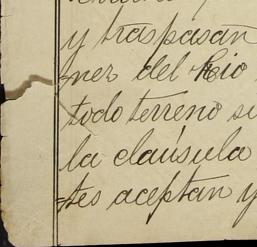 y traspasan
ner del Rio
todo terreno si
la claúsula
tes aceptan y